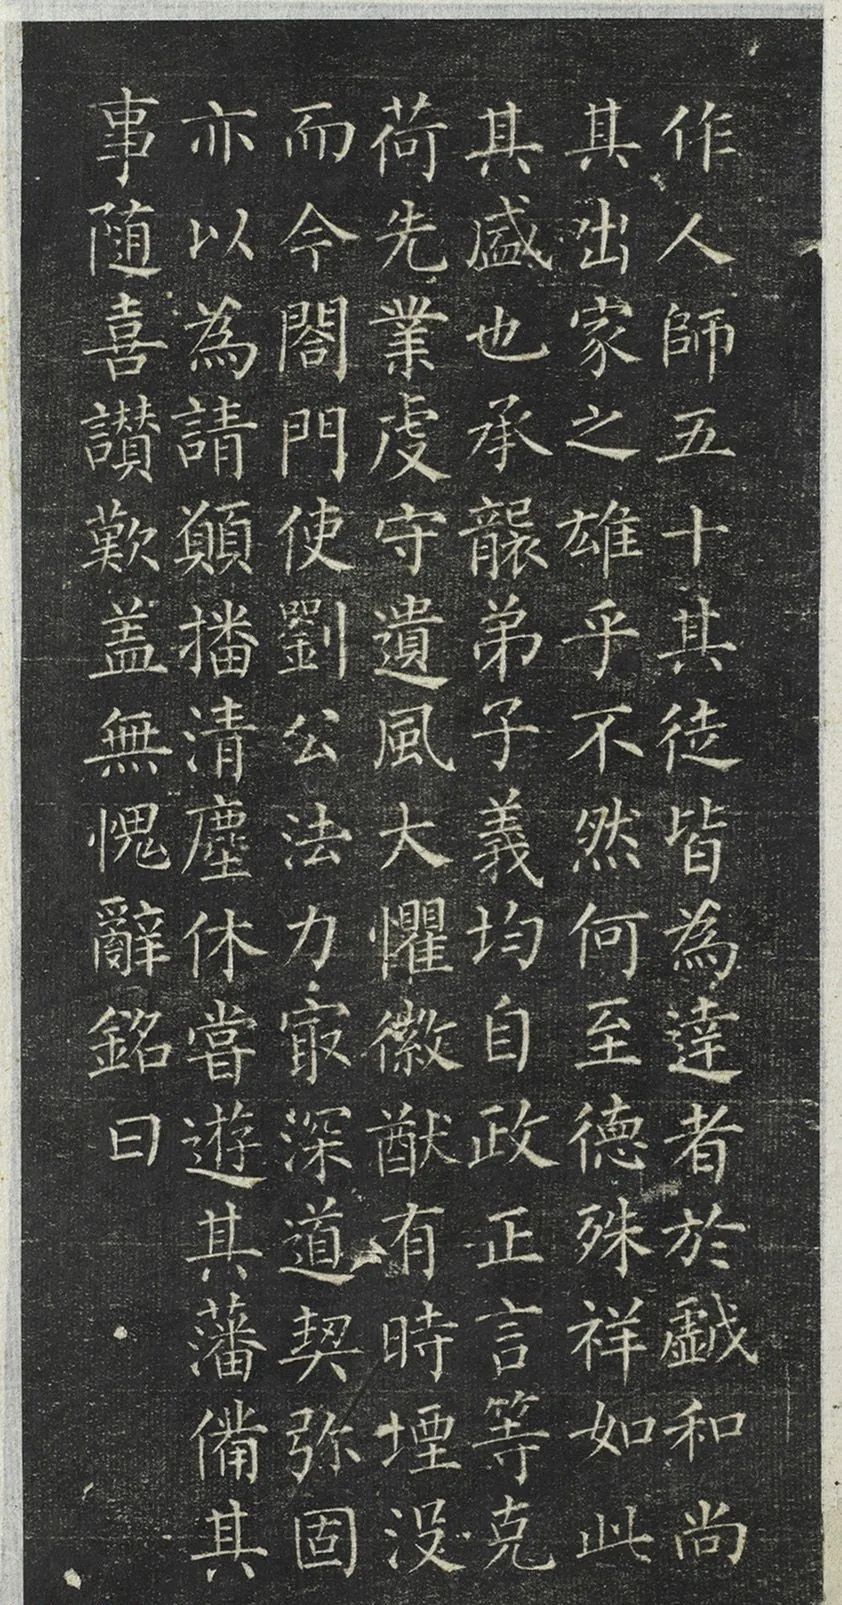 作人師五十其徒皆為達者於戱和尚
其出家之雄乎不然何至德殊祥如此
其盛也承襲弟子義均自政正言等克
荷先業虔守遺風大懼徽猷有時堙没
而今閤門使劉公法力㝡深道契弥固
亦以為請願播清塵休嘗遊其藩備其
事随喜讃歎盖無愧辭銘曰